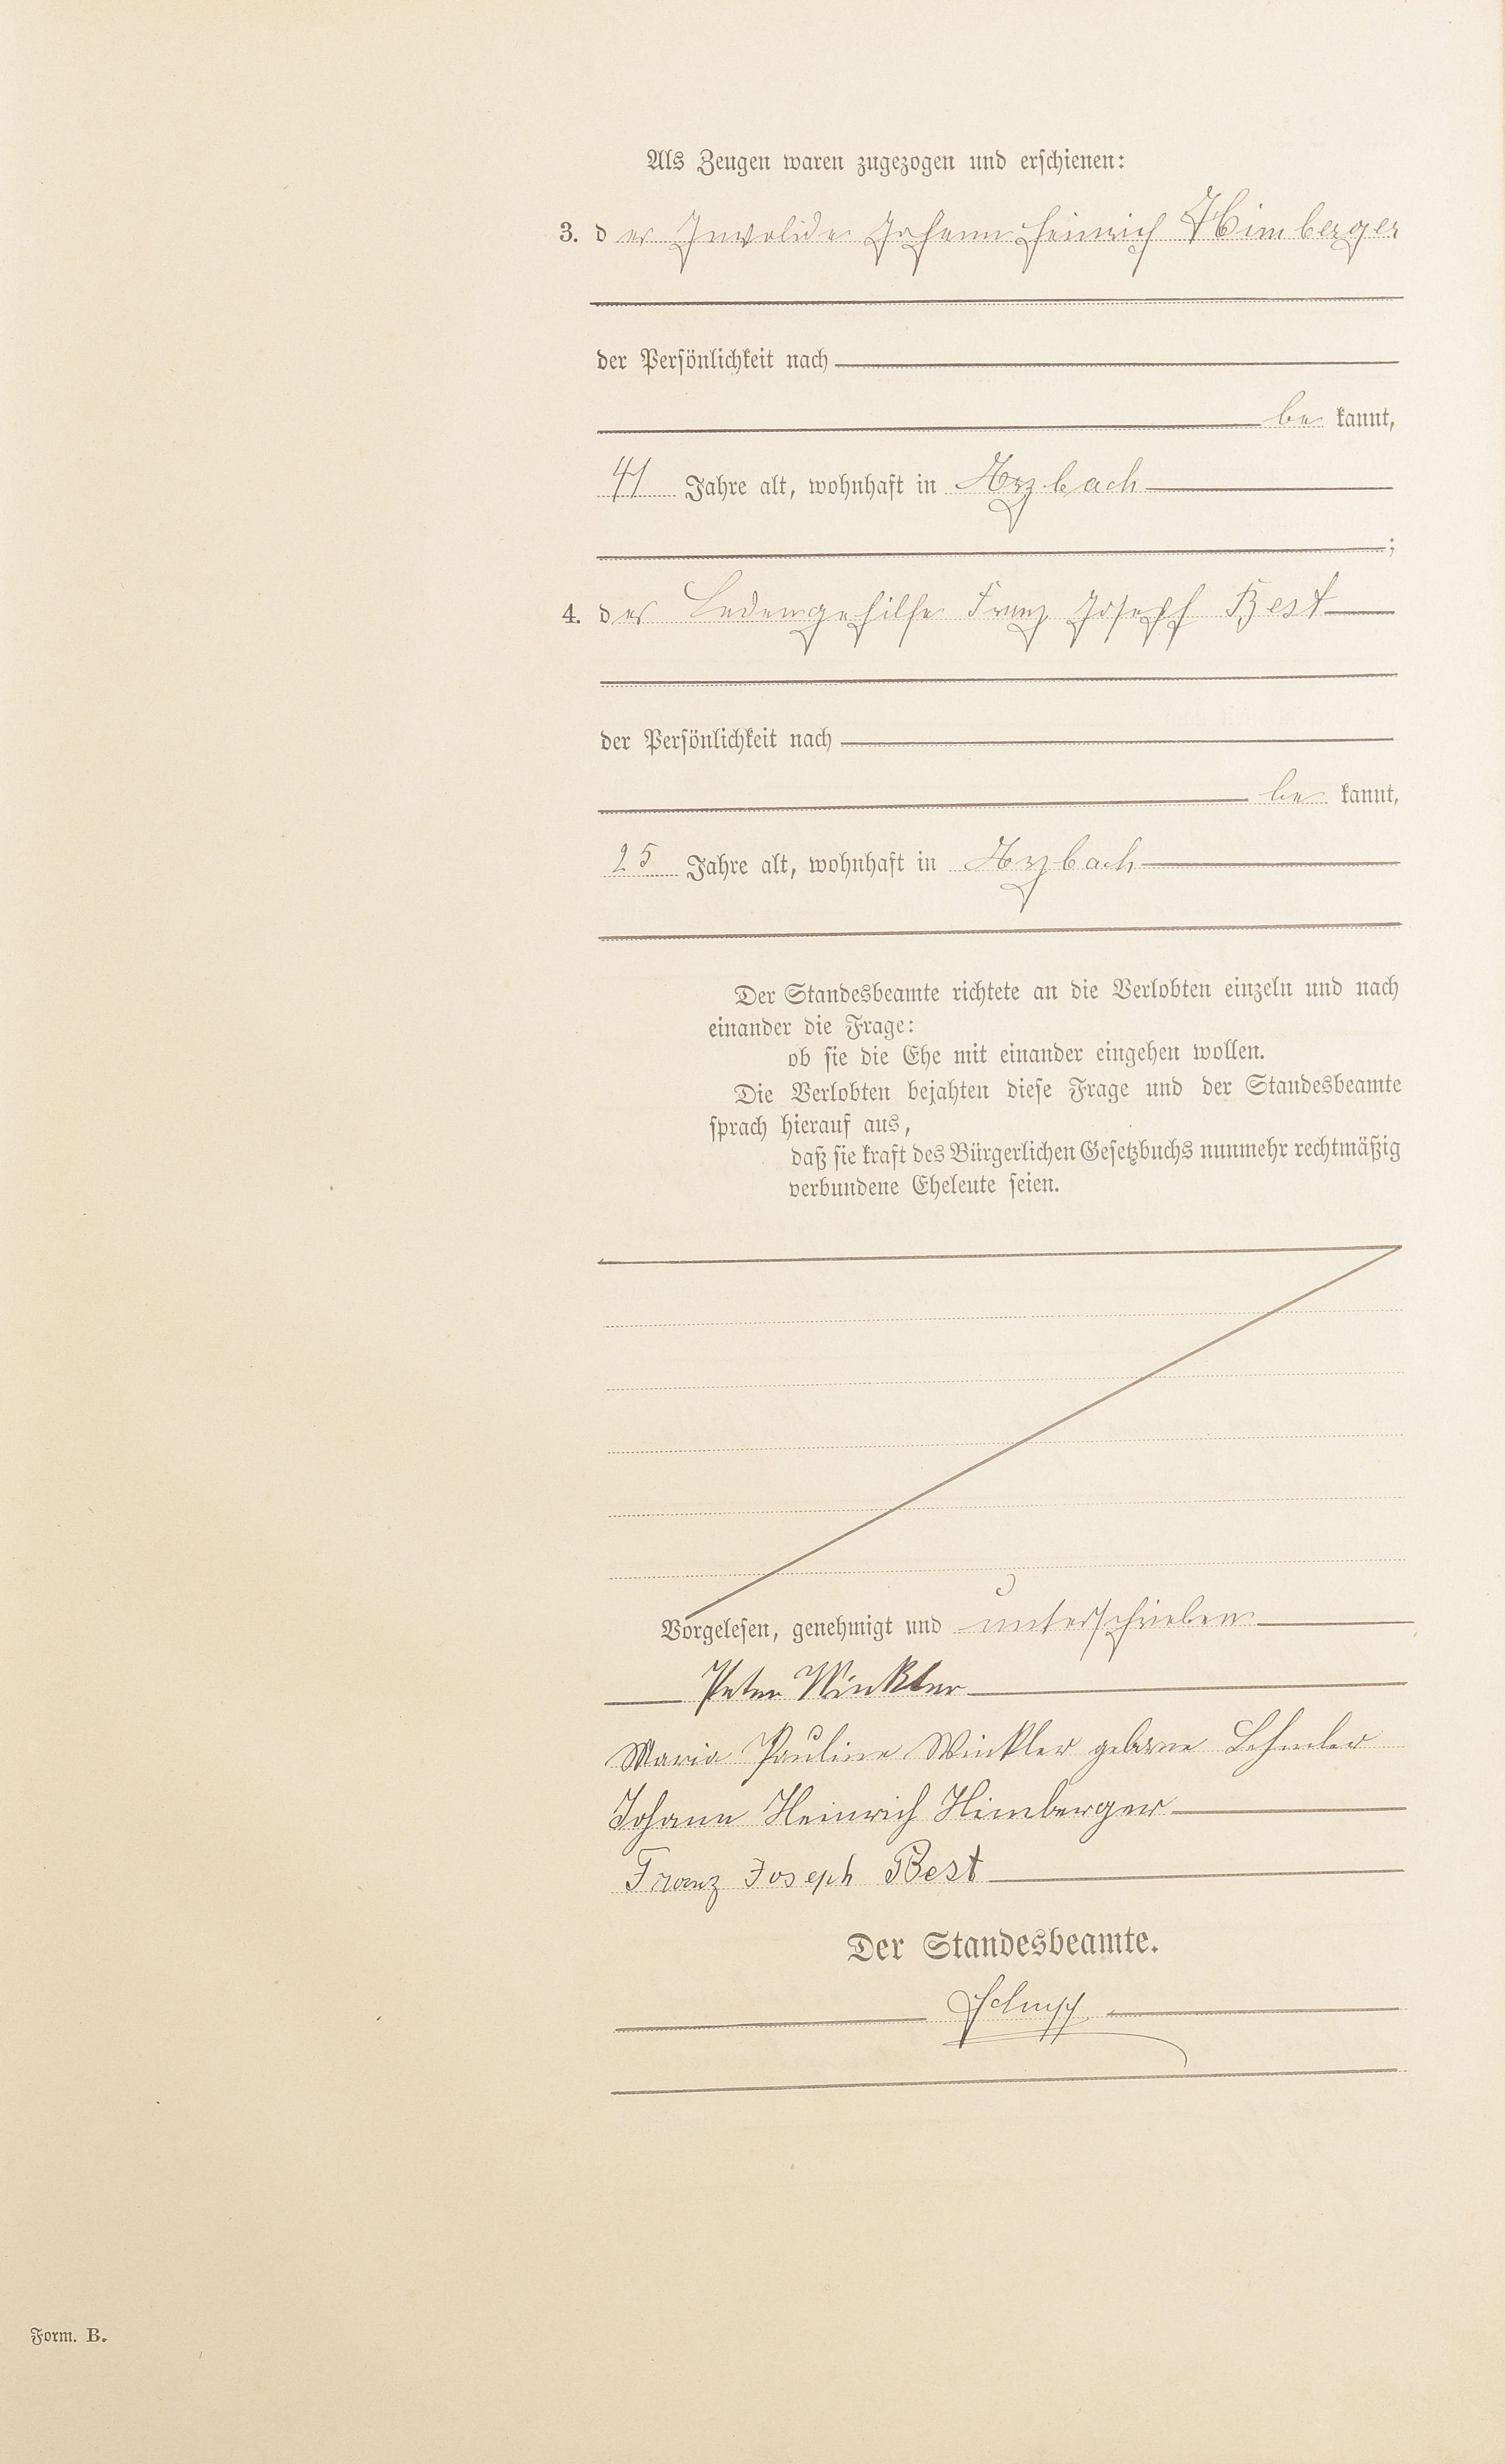 Als Zeugen waren zugezogen und erschienen:
3. der Invalide Johann Heinrich Himberger
der Persönlichkeit nach
be kannt,
41 Jahre alt, wohnhaft in Arzbach
;
4. der Ladengehilfe Franz Joseph Best
der Persönlichkeit nach
be kannt,
25 Jahre alt, wohnhaft in Arzbach
Der Standesbeamte richtete an die Verlobten einzeln und nach
einander die Frage:
ob sie die Ehe mit einander eingehen wollen.
Die Verlobten bejahten diese Frage und der Standesbeamte
sprach hierauf aus,
daß sie kraft des Bürgerlichen Gesetzbuchs nunmehr rechtmäßig
verbundene Eheleute seien.
Vorgelesen, genehmigt und unterschrieben
Peter Winkler
Maria Pauline Winkler geborne Lehmler
Johann Heinrich Himberger
Franz Joseph Best
Der Standesbeamte.
Form. B.